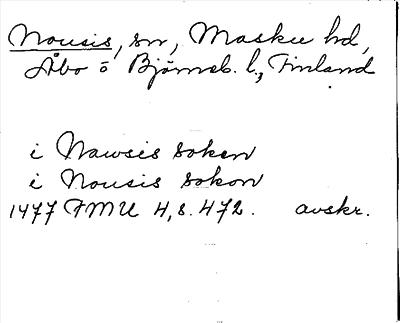 Nousis, sn, Masku hd,
Åbo o Bjömeb. l., Finland
i Nawsis soken
i Nousis sokon
1477 FMU 4, s. 472. avskr.